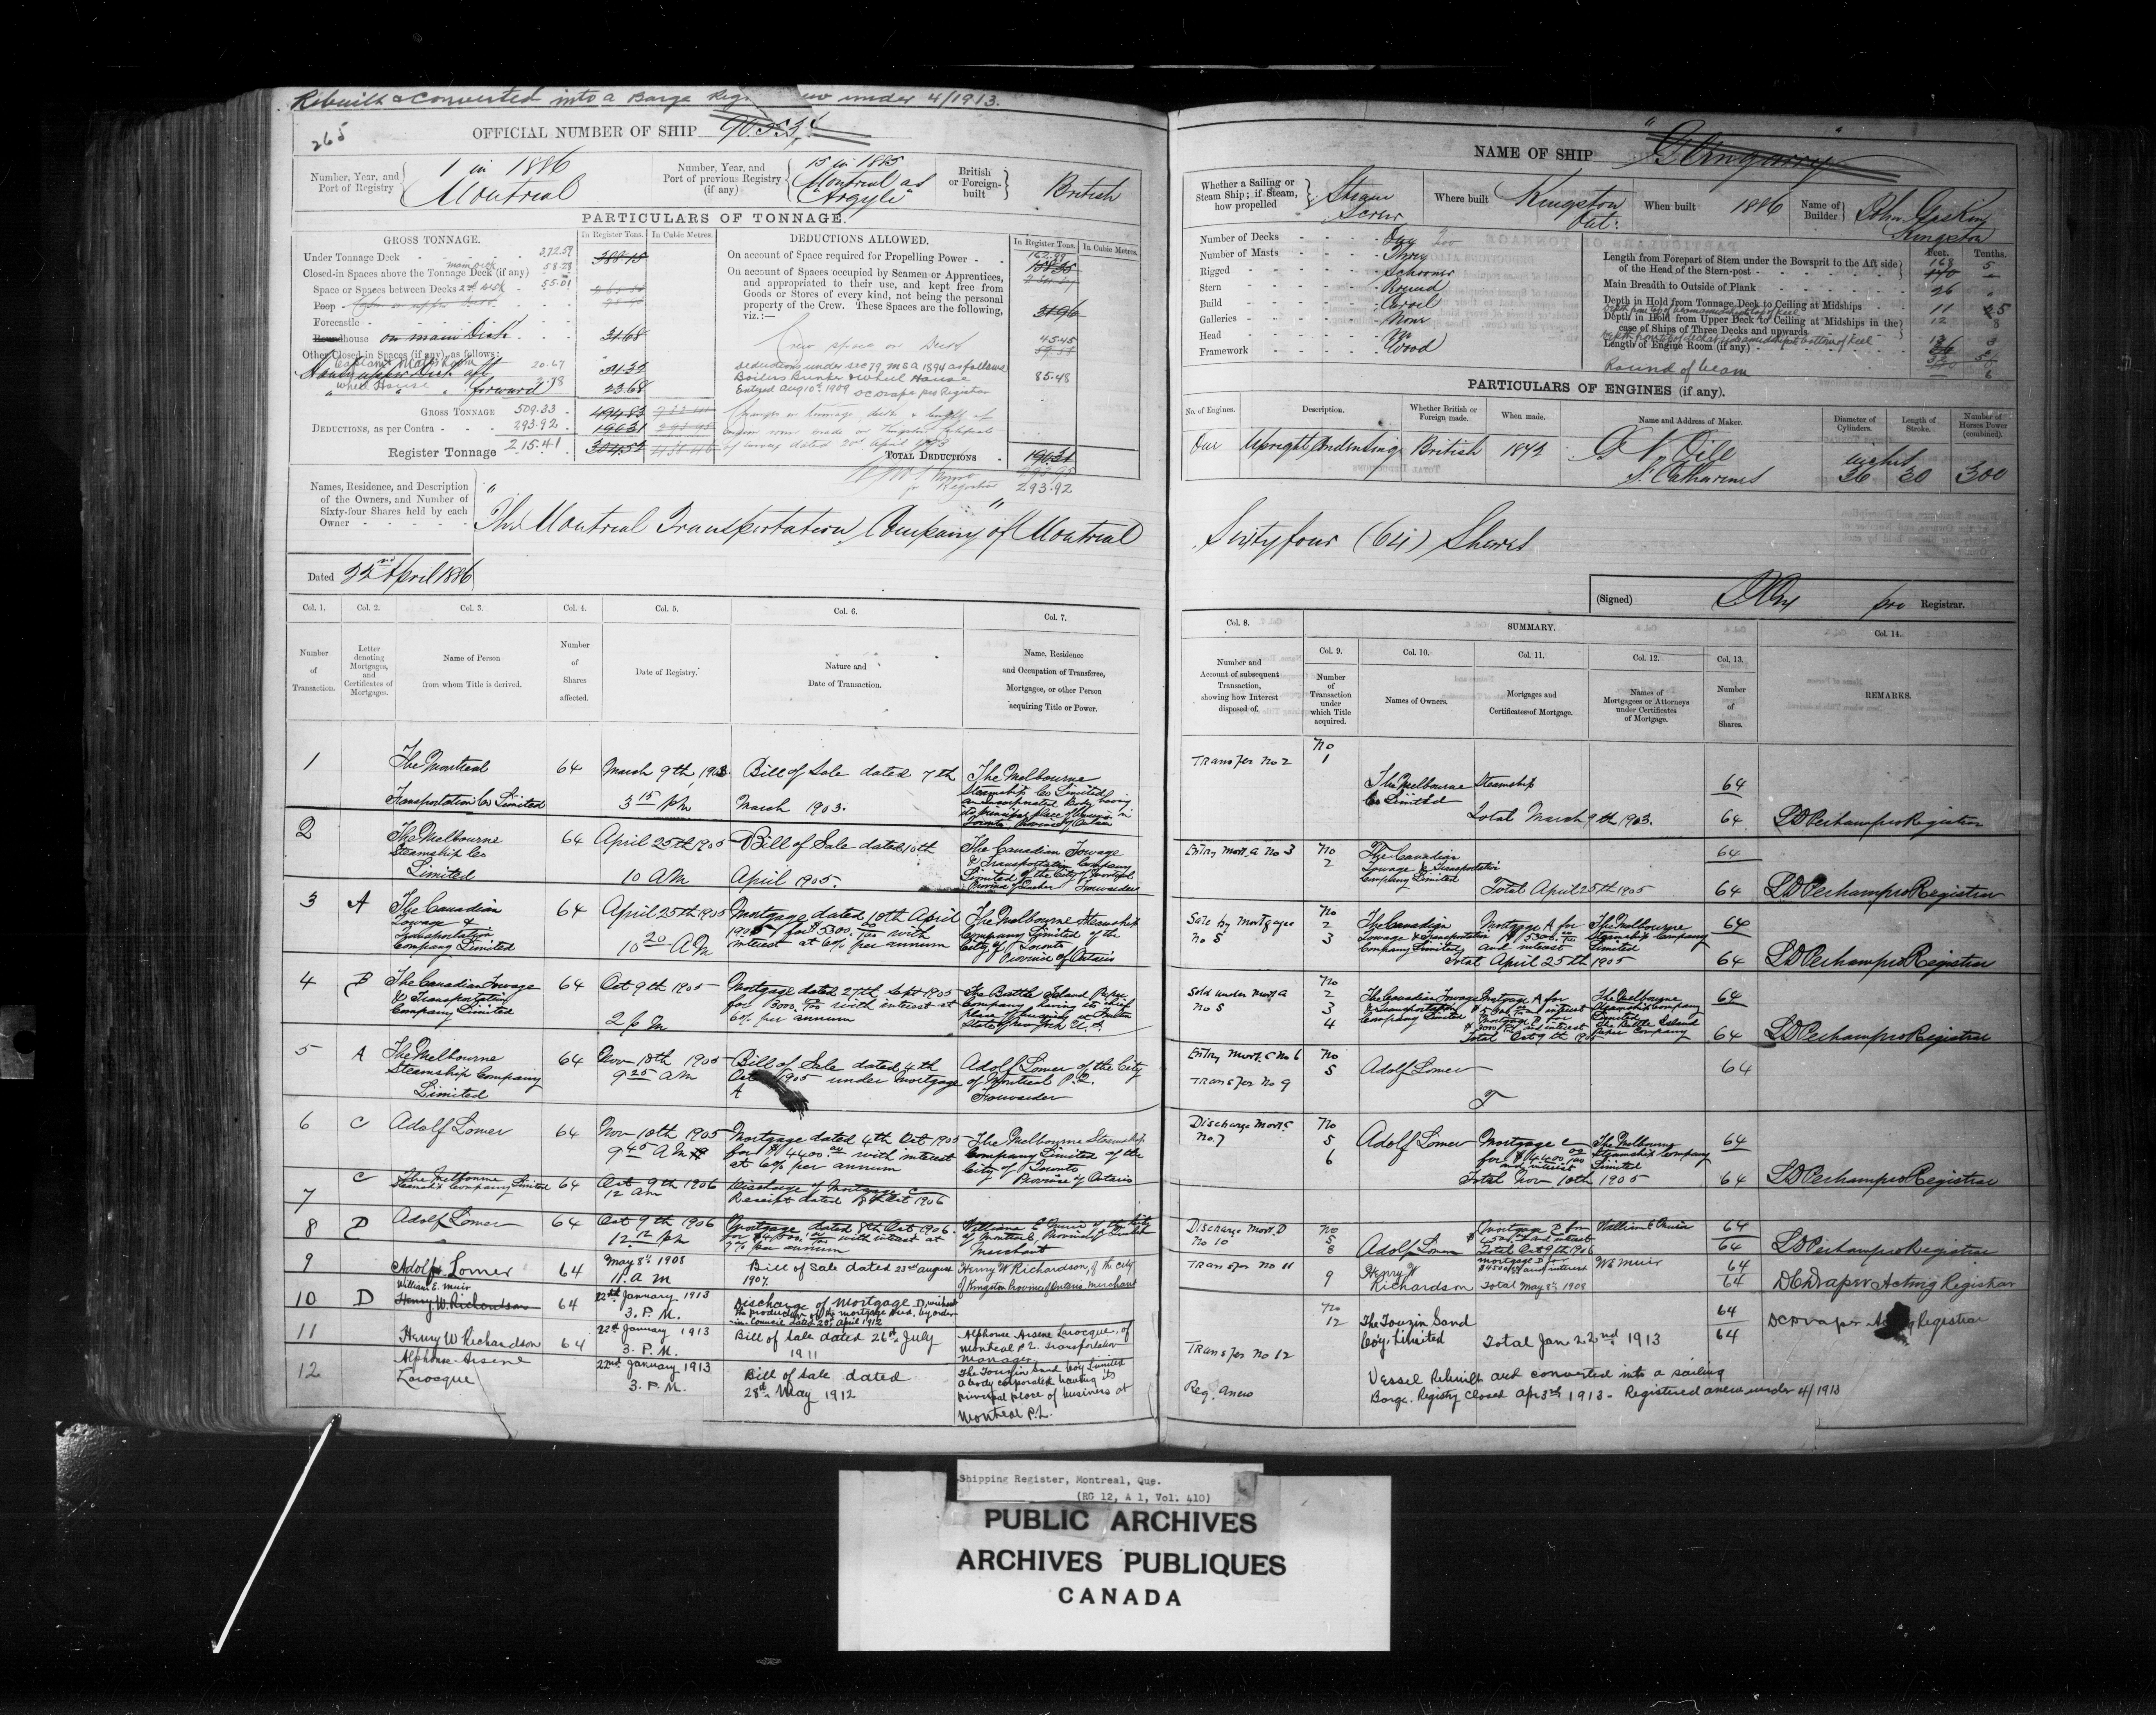 Rebuilt & converted into a Barge Reg under 4/1913.
265
OFFICIAL NUMBER OF SHIP
Number, Year, and Port of Registry
1 in 1886
Montreal
Number, Year, and Port of previous Registry (if any)
15 in 1885
Montreal as
"Argyle"
British or Foreign-built
British
PARTICULARS OF TONNAGE.
GROSS TONNAGE.
In Register Tons.
In Cubic Metres.
Under Tonnage Deck
372.59
388.15
Closed-in Spaces above the Tonnage Deck (if any)
main deck
58.28
Space or Spaces between Decks
55.01
Poop
Forecastle
Roundhouse on main Deck
31.68
Other Closed-in Spaces (if any), as follows:
20.67
31.32
Wheel House
forward
2.78
23.68
GROSS TONNAGE
509.33
494.83
DEDUCTIONS, as per Contra
293.92
196.31
Register Tonnage
215.41
304.52
DEDUCTIONS ALLOWED.
In Register Tons.
In Cubic Metres.
On account of Space required for Propelling Power
162.99
158.35
On account of Spaces occupied by Seamen or Apprentices, and appropriated to their use, and kept free from Goods or Stores of every kind, not being the personal property of the Crew. These Spaces are the following, viz.:—
31.96
Crew space on Deck
45.45
Deductions under sec 79, M S A 1894 as follows
Boilers Bunker & Wheel House
85.48
Entered Aug 10th 1909 DC Draper pro Registrar
TOTAL DEDUCTIONS
196.31
293.92
Names, Residence, and Description of the Owners, and Number of Sixty-four Shares held by each Owner
"The Montreal Transportation Company" of Montreal
Dated 22nd April 1886
Col. 1.
Col. 2.
Col. 3.
Col. 4.
Col. 5.
Col. 6.
Col. 7.
Number of Transaction.
Letter denoting Mortgages, and Certificates of Mortgages.
Name of Person from whom Title is derived.
Number of Shares affected.
Date of Registry.
Nature and Date of Transaction.
Name, Residence and Occupation of Transferee, Mortgagee, or other Person acquiring Title or Power.
1
The Montreal
Transportation Co Limited
64
March 9th, 1903
3 15 pm
Bill of Sale dated 7th
March 1903.
The Melbourne
Steamship Co Limited
an incorporated Body having
its principal place of business in
Toronto Province of Ontario
2
The Melbourne
Steamship Co
Limited
64
April 25th 1905
10 AM
Bill of Sale dated 10th
April 1905.
The Canadian Towage
& Transportation Company
Limited of the City of Montreal
Province of Quebec
3
A
The Canadian
Towage &
Transportation
Company Limited
64
April 25th 1905
10 20 AM
Mortgage dated 10th April
1905 for $5300. 00/100 with
interest at 6% per annum
The Melbourne Steamship
Company Limited of the
City of Toronto
Province of Ontario
4
B
The Canadian Towage
& Transportation
Company Limited
64
Oct 9th 1905
2 pm
Mortgage dated 27th Sept 1905
for $3000 with interest at
6% per annum
The Battle Island Paper
Company having its chief
place of business at Fulton
State of New York U.S.
5
A
The Melbourne
Steamship Company
Limited
64
Nov 10th 1905
9 25 AM
Bill of Sale dated 4th
Oct 1905 under mortgage
A
Adolf Lomer of the City
of Montreal P.Q.
Forwarder
6
C
Adolf Lomer
64
Nov 10th 1905
9 45 AM
Mortgage dated 4th Oct 1905
for $4400. 00 with interest
at 6% per annum
The Melbourne Steamship
Company Limited of the
City of Toronto
Province of Ontario
7
C
The Melbourne
Steamship Company Limited
64
Oct 9th 1906
12 am
Discharge of Mortgage C
Receipt dated 8th Oct 1906
8
D
Adolf Lomer
64
Oct 9th 1906
12 12 pm
Mortgage dated 8th Oct 1906
for $4500. with interest at
7% per annum
William E Muir of the City
of Montreal, Province of Quebec
Merchant
9
Adolf Lomer
64
May 8th 1908
11. a m
Bill of Sale dated 23rd August
1907.
Henry W Richardson, of the City
of Kingston Province of Ontario merchant
10
D
William E. Muir
Henry W. Richardson
64
22nd January 1913
3. P.M.
Discharge of Mortgage D, without
the production of the mortgage deed, by order-
in-Council dated 29th April 1912
11
Henry W Richardson
64
22nd January 1913
3. P.M.
Bill of Sale dated 26th July
1911
Alphonse Arsene Larocque, of
Montreal P.Q. Transportation
Manager
12
Alphonse Arsene
Larocque
22nd January 1913
3. P.M.
Bill of Sale dated
28th May 1912
The Touzin Sand Coy Limited
a body corporated having its
principal place of business at
Montreal P.Q.
NAME OF SHIP "Glengarry"
Whether a Sailing or Steam Ship; if Steam, how propelled
Steam
Screw
Where built
Kingston
Ont.
When built
1886
Name of Builder
John Gaskin
Kingston
Number of Decks - One Two
Number of Masts - Three
Rigged - Schooner
Stern - Round
Build - Carvel
Galleries - None
Head - No
Framework - Wood
Feet.
Tenths.
Length from Forepart of Stem under the Bowsprit to the Aft side of the Head of the Stern-post
168
5
Main Breadth to Outside of Plank
26
Depth in Hold from Tonnage Deck to Ceiling at Midships
11
Depth in Hold from Upper Deck to Ceiling at Midships in the case of Ships of Three Decks and upwards
12
8
Length of Engine Room (if any)
Round of beam
6
PARTICULARS OF ENGINES (if any).
No. of Engines.
Description.
Whether British or Foreign made.
When made.
Name and Address of Maker.
Diameter of Cylinders.
Length of Stroke.
Number of Horses Power (combined).
One
Upright Condensing
British
G N Oill
St Catharines
36
30
300
Sixty four (64) Shares
(Signed)
pro Registrar.
Col. 8.
SUMMARY.
Col. 9.
Col. 10.
Col. 11.
Col. 12.
Col. 13.
Col. 14.
Number and Account of subsequent Transaction, showing how Interest disposed of.
Number of Transaction under which Title acquired.
Names of Owners.
Mortgages and Certificates of Mortgage.
Names of Mortgagees or Attorneys under Certificates of Mortgage.
Number of Shares.
REMARKS.
Transfer No 2
No
1
The Melbourne Steamship
Co Limited
64
Total March 9th 1903.
64
LD Perham pro Registrar
Entry Mort. A No 3
No
2
The Canadian
Towage & Transportation
Company Limited
64
Total April 25th 1905
64
LD Perham pro Registrar
Sale by Mortgagee
No 5
No
2
3
The Canadian
Towage & Transportation
Company Limited
Mortgage A for
$5300.
and interest
The Melbourne
Steamship Company
Limited
64
Total April 25th 1905
64
LD Perham pro Registrar
Sold under Mort A
No 5
No
2
3
4
The Canadian Towage
& Transportation
Company Limited
Mortgage A for
$5300 and interest
Mortgage B for
$3000 and interest
The Melbourne
Steamship Company
Limited
The Battle Island
Paper Company
64
Total Oct 9th 1905
64
LD Perham pro Registrar
Entry Mort. C No 6
Transfer No 9
No
5
Adolf Lomer
64
T
Discharge Mort. C
No. 7
No
5
6
Adolf Lomer
Mortgage C
for $4400 00/100
and interest
The Melbourne
Steamship Company
Limited
64
Total Nov 10th 1905
64
LD Perham pro Registrar
Discharge Mort. D
No 10
No
5
8
Adolf Lomer
Mortgage D for
$4500 and interest
William E Muir
64
Total Oct 9th 1906
64
LD Perham pro Registrar
Transfer No 11
9
Henry W
Richardson
Mortgage D for
$4500 and interest
W E Muir
64
Total May 8th 1908
64
DC Draper Acting Registrar
Transfer No 12
No
12
The Touzin Sand
Coy. Limited
64
Total Jan 22nd 1913
64
DC Draper Registrar
Reg. Anew
Vessel Rebuilt and converted into a sailing
Barge. Registry closed Apr 3rd 1913 - Registered anew under 4/1913
Shipping Register, Montreal, Que.
(RG 12, A 1, Vol. 410)
PUBLIC ARCHIVES
ARCHIVES PUBLIQUES
CANADA